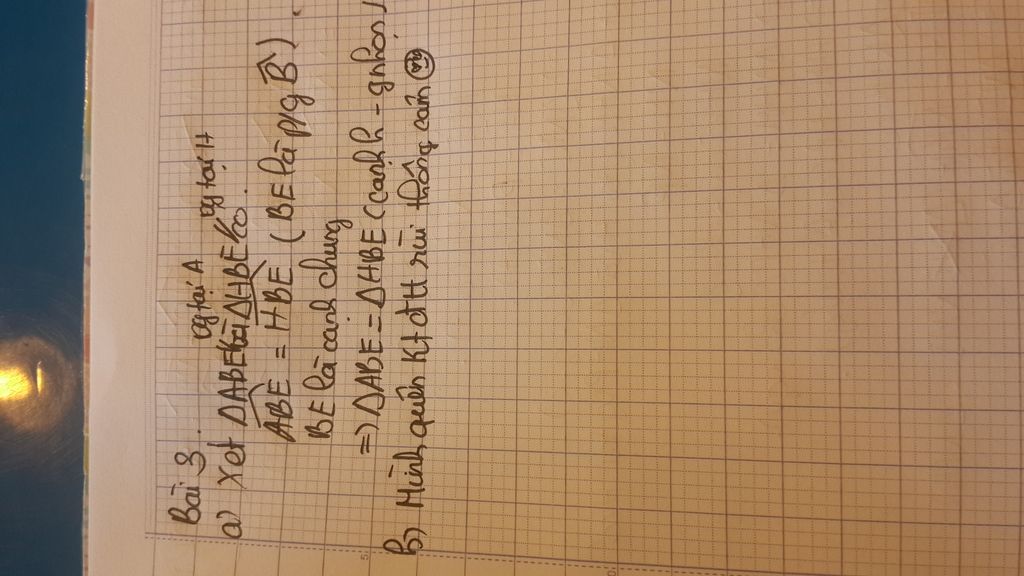 Bài 3.
vg tại A vg tại H
a) Xét ΔABE và ΔHBE có.
ABE = HBE ( BE là p/g B ) .
BE là cạnh chung
=) ΔABE = ΔHBE (cạnh h - g nhọn)
b) Mình quên kt đtt rùi thông cảm